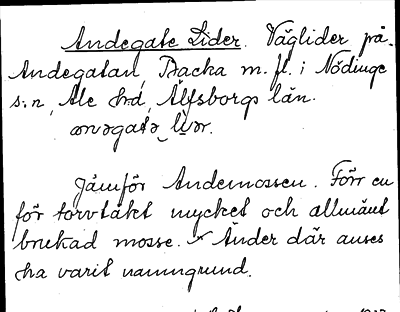 Andegate Lider. Väglider på
Andegatan, Backa m. fl. i Nödinge
s:n, Ale hd, Älfsborgs län.
anegate lier.
Jämför Andemossen. Förr en
för torvtäkt mycket och allmänt
brukad mosse. Änder där anses
ha varit namngrund.